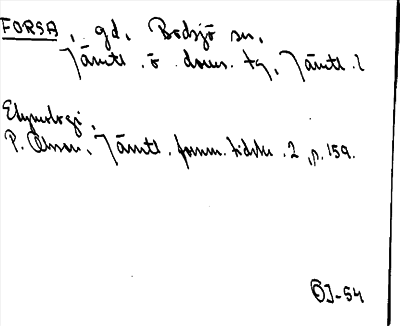 FORSA, gd, Bodsjö sn,
Jämtl. ö. doms. tg, Jämtl. l
Etymologi,
P. Olsson, Jämtl. fornm. tidskr. 2, p. 159.
ÖJ-54